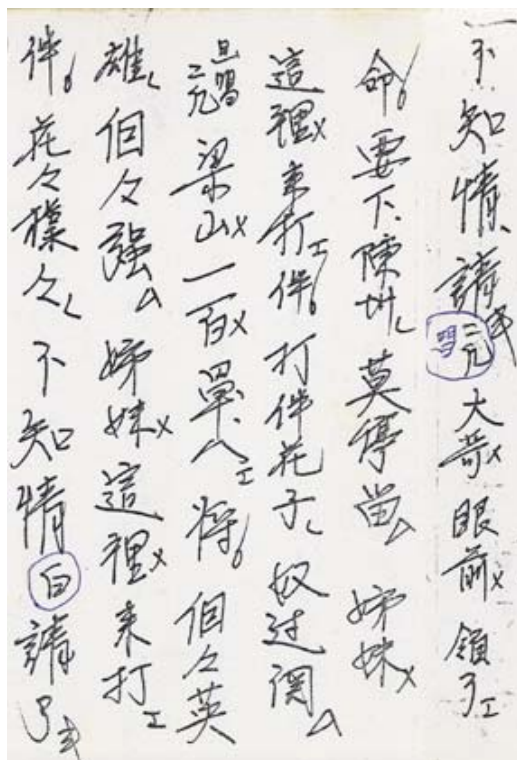 不知情請大哥眼前領了
命要下陳州莫停當姊妹
這裡來打伴打伴花子奴过関
旦唱二凢梁山一百單八將個々英
雄個々强姊妹這裡來打
伴花々襍々不知情白請了